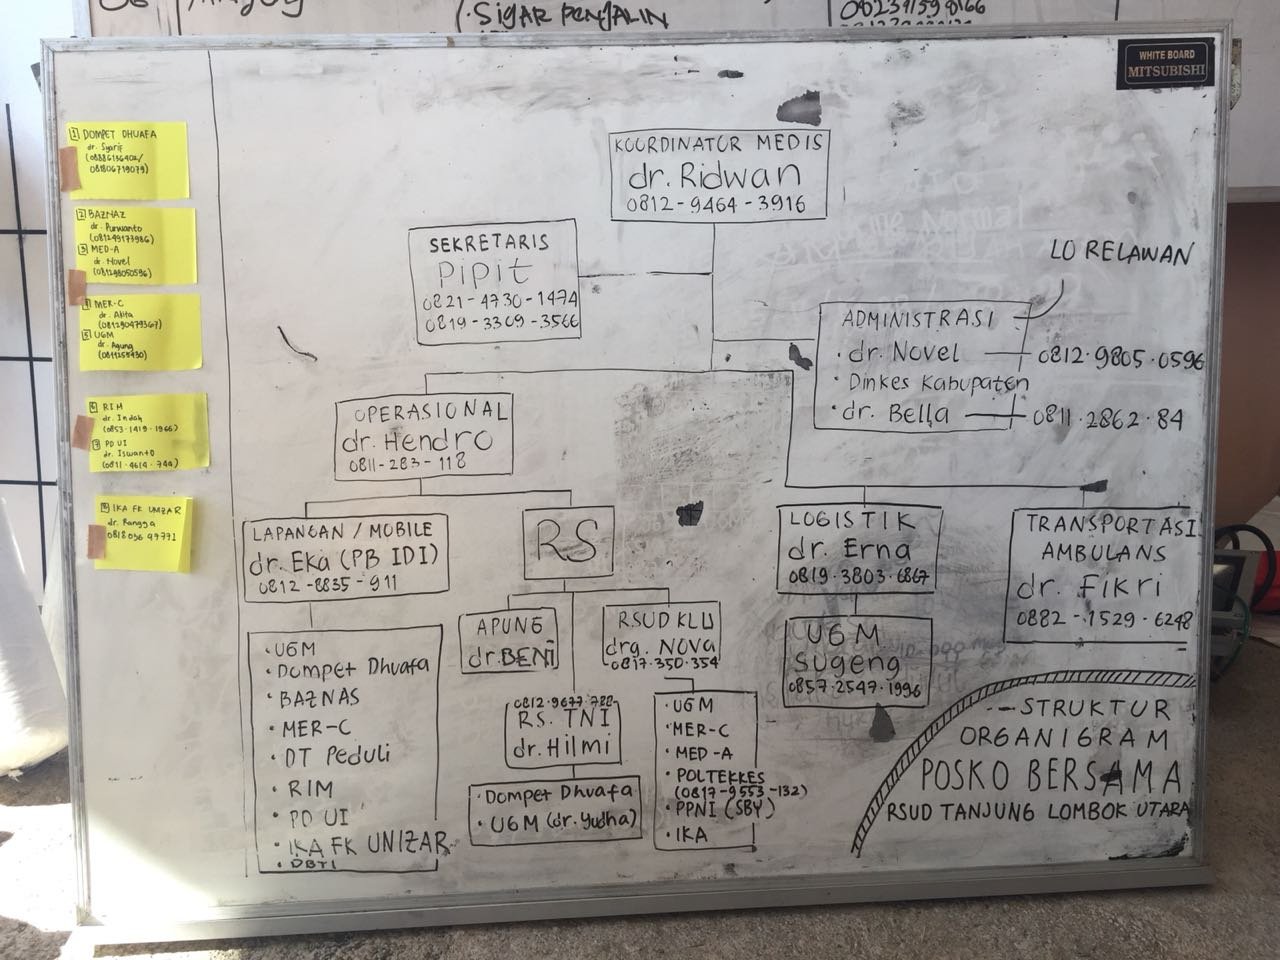 SIGAR PENJALIN
WHITE BOARD
MITSUBISHI
1 DOMPET DHUAFA
dr. Syarif
(0888136402/
081806719079)
2 BAZNAZ
dr. Purwanto
(081249173986)
3 MED-A
dr. Novel
(081298050596)
4 MER-C
dr. Akita
(081290479367)
5 UGM
dr. Agung
(0811258430)
6 RIM
dr. Indah
(0853-1419-1966)
7 PD UI
dr. Iswanto
(0811-4614-744)
8 IKA FK UNIZAR
dr. Rangga
0818 036 99771
KOORDINATOR MEDIS
dr. Ridwan
0812-9464-3916
SEKRETARIS
Pipit
0821-4730-1474
0819-3309-3566
LO RELAWAN
ADMINISTRASI
· dr. Novel — 0812·9805·0596
· Dinkes Kabupaten
· dr. Bella — 0811·2862·84
OPERASIONAL
dr. Hendro
0811-283-118
LAPANGAN / MOBILE
dr. Eka (PB IDI)
0812-8835-911
· UGM
· Dompet Dhuafa
· BAZNAS
· MER-C
· DT Peduli
· RIM
· PD UI
· IKA FK UNIZAR
· DBTI
RS
APUNG
dr. BENI
RSUD KLU
drg. NOVA
0817·350·354
0812·9677·788
RS. TNI
dr. Hilmi
· Dompet Dhuafa
· UGM (dr. Yudha)
· UGM
· MER-C
· MED-A
· POLTEKKES
(0817-9553-132)
· PPNI (SBY)
· IKA
LOGISTIK
dr. Erna
0819·3803·6867
UGM
Sugeng
0857·2547·1996
TRANSPORTASI
AMBULANS
dr. Fikri
0882-1529-6248
STRUKTUR
ORGANIGRAM
POSKO BERSAMA
RSUD TANJUNG LOMBOK UTARA